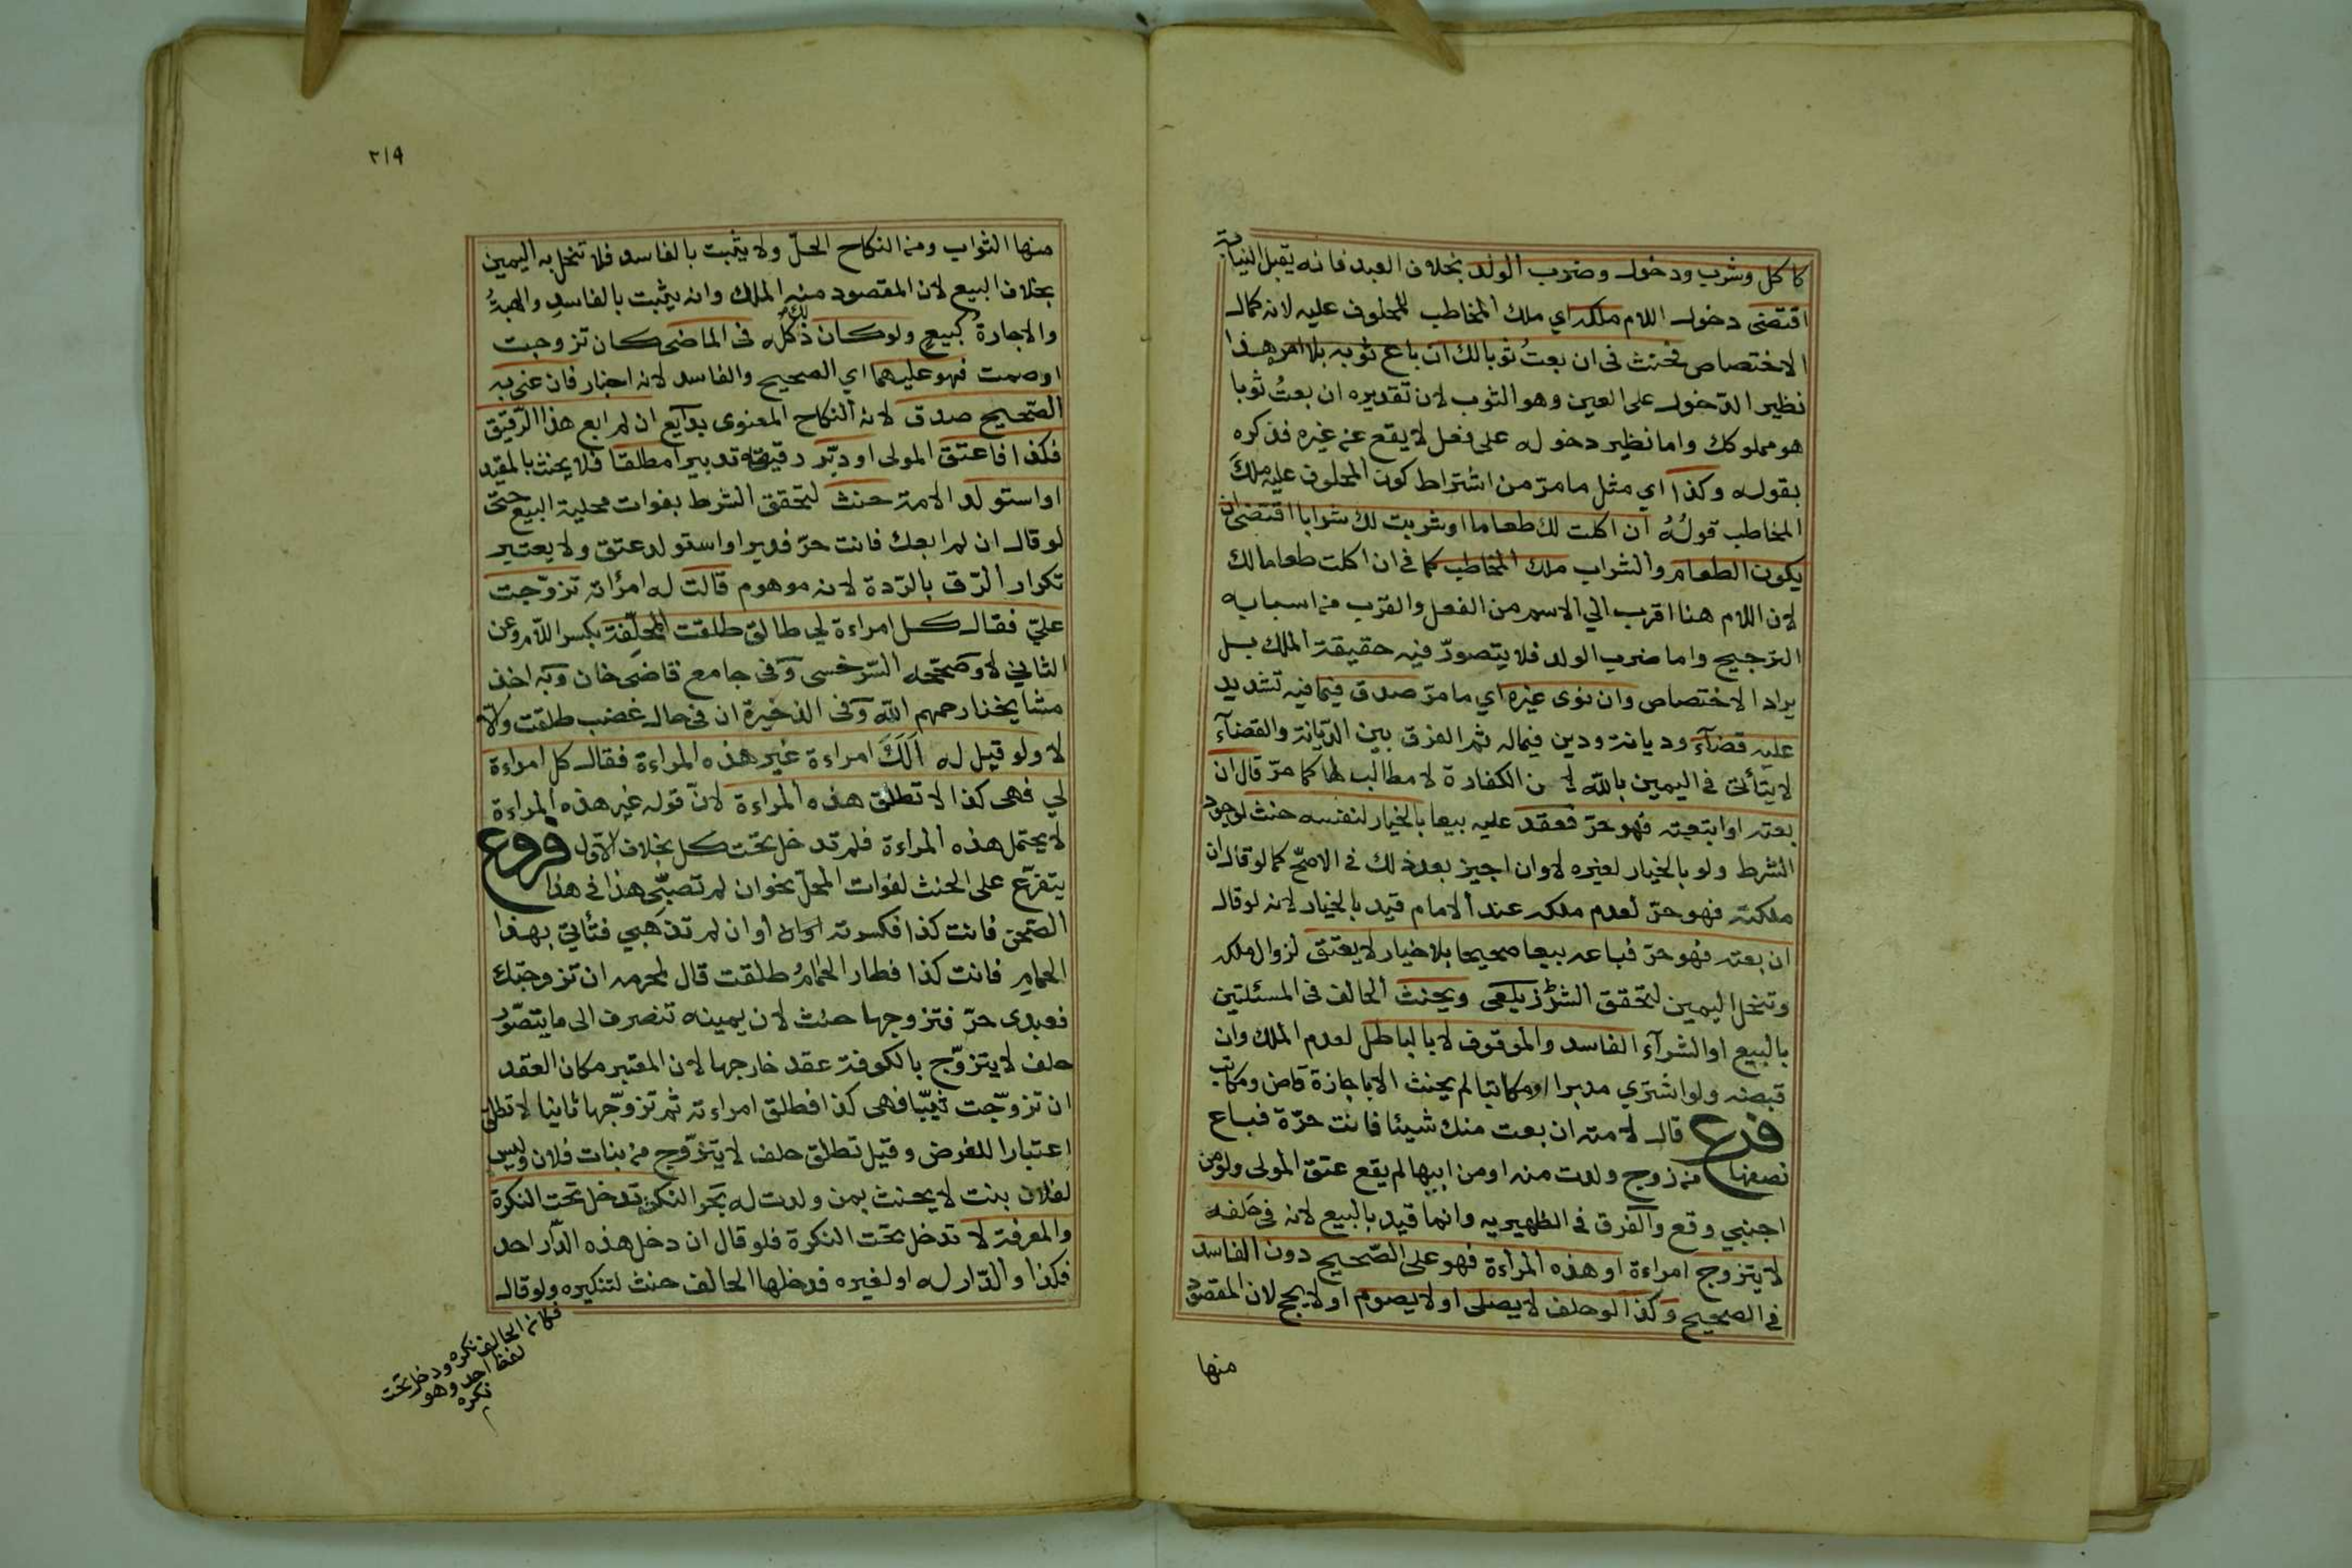 كاكل وشرب ودخول وضرب الولد بخلاف العبد فانه يقبل النيابة
اقتضى دخول اللام ملكه اي ملك المخاطب للمحلوف عليه لانه كمال
الاختصاص فحنث في ان بعتُ ثوبا لك ان باع ثوبه بلا امر هذا
نظير الدّخول على العين وهو الثوب لان تقديره ان بعتُ ثوبا
هو مملوكك واما نظير دخوله على فعل لا يقع عن غيره فذكره
بقوله وكذا اي مثل ما مرّ من اشتراط كون المحلوف عليه ملكَ
المخاطب قولُهُ ان اكلت لك طعاما او شربت لك شرابا اقتضى ان
يكون الطعام والشراب ملك المخاطب كما في ان اكلت طعاما لك
لان اللام هنا اقرب الي الاسم من الفعل والقرب من اسبابه
الترجيح واما ضرب الولد فلا يتصورّ فيه حقيقة الملك بل
يراد الاختصاص وان نوى غيره اي ما مرّ صدق فيما فيه تشديد
عليه قضآء وديانة ودين فيما له ثم الفرق بين الدّيانة والقضآء
لا يتأتى في اليمين بالله لان الكفارة لا مطالب لها كما مرّ قال ان
بعته او ابتعته فهو حرّ فعقد عليه بيعا بالخيار لنفسه حنث لوجود
الشرط ولو بالخيار لغيره لا وان اجيز بعد ذلك في الاصحّ كما لو قال ان
ملكته فهو حرّ لعدم ملكه عند الامام قيد بالخيار لانه لو قال
ان بعته فهو حرّ فباعه بيعا صحيحا بلا خيار لا يعتق لزوال ملكه
وتنحل اليمين لتحقق الشرط زيلعي ويحنث الحالف في المسئلتين
بالبيع او الشرآء الفاسد والموقوف لا بالباطل لعدم الملك وان
قبضه ولو اشتري مدبرا او مكاتبا لم يحنث الا باجازة قاض ومكاتب
فرع قال لامته ان بعت منك شيئا فانت حرّة فباع
نصفها من زوج ولدت منه او من ابيها لم يقع عتق المولى ولو من
اجنبي وقع والفرق في الظهيريه وانما قيد بالبيع لانه في حلفه
لا يتزوج امراءة او هذه المرأة فهو على الصّحيح دون الفاسد
في الصحيح وكذا لو حلف لا يصلى او لا يصوم او لا يحج لان المقصود
منها
٢١٩
منها الثواب ومن النكاح الحلّ ولا يثبت بالفاسد فلا تنحل به اليمين
بخلاف البيع لان المقصود منه الملك وانه يثبت بالفاسدِ والهبةُ
والاجارة كبيعٍ ولو كان ذلك كلّه في الماضى كان تزوجت
او صمت فهو عليهما اي الصحيح والفاسد لانه اخبار فان عنى به
الصّحيح صدق لانه النكاح المعنوى بدآيع ان لم ابع هذا الرّقيق
فكذا فاعتق المولى او دبّر رقيقه تدبيرا مطلقا فلا يحنث بالمقيد
او استولد الامة حنث لتحقق الشرط بفوات محلية البيع حتى
لو قال ان لم ابعك فانت حرّ فدبر او استولد عتق ولا يعتبر
تكرار الرّق بالرّدة لانه موهوم قالت له امرأته تزوّجت
عليّ فقال كل امراءة لي طالق طلقت المحلِّفة بكسر اللّام وعن
الثاني لا وصحّحه السّرخسى وفى جامع قاضى خان وبه اخذ
مشايخنا رحمهم الله وفى الذخيرة ان في حال غضب طلقت والّا
لا ولو قيل له اَلَكَ امراءة غير هذه المراءة فقال كل امراءة
لي فهى كذا لا تطلق هذه المراءة لانّ قوله غير هذه المراءة
لا يحتمل هذه المراءة فلم تدخل تحت كل بخلاف الاوّل فروع
يتفرّع على الحنث لفوات المحلّ نحو ان لم تصبّى هذا في هذا
الصّحن فانت كذا فكسرته او ان لم تذهبي فتأتي بهذا
الحمامِ فانت كذا فطار الحمامُ طلقت قال لمحرمه ان تزوجتك
فعبدى حرّ فتزوجها حنث لان يمينه تنصرف الى ما يتصّور
حلف لا يتزوّج بالكوفة عقد خارجها لان المعتبر مكان العقد
ان تزوّجت ثيّبا فهى كذا فطلق امراءته ثم تزوّجها ثانيا لا تطلق
اعتبارا للغرض وقيل تطلق حلف لا يتزّوج من بنات فلان وليس
لفلان بنت لا يحنث بمن ولدت له بحر النكرة تدخل تحت النكرة
والمعرفة لا تدخل تحت النكرة فلو قال ان دخل هذه الدّار احد
فكذا والدّار له او لغيره فدخلها الحالف حنث لتنكيره ولو قال
فكانه الحالف نكره ودخل تحت
لفظ احد وهو
نكره